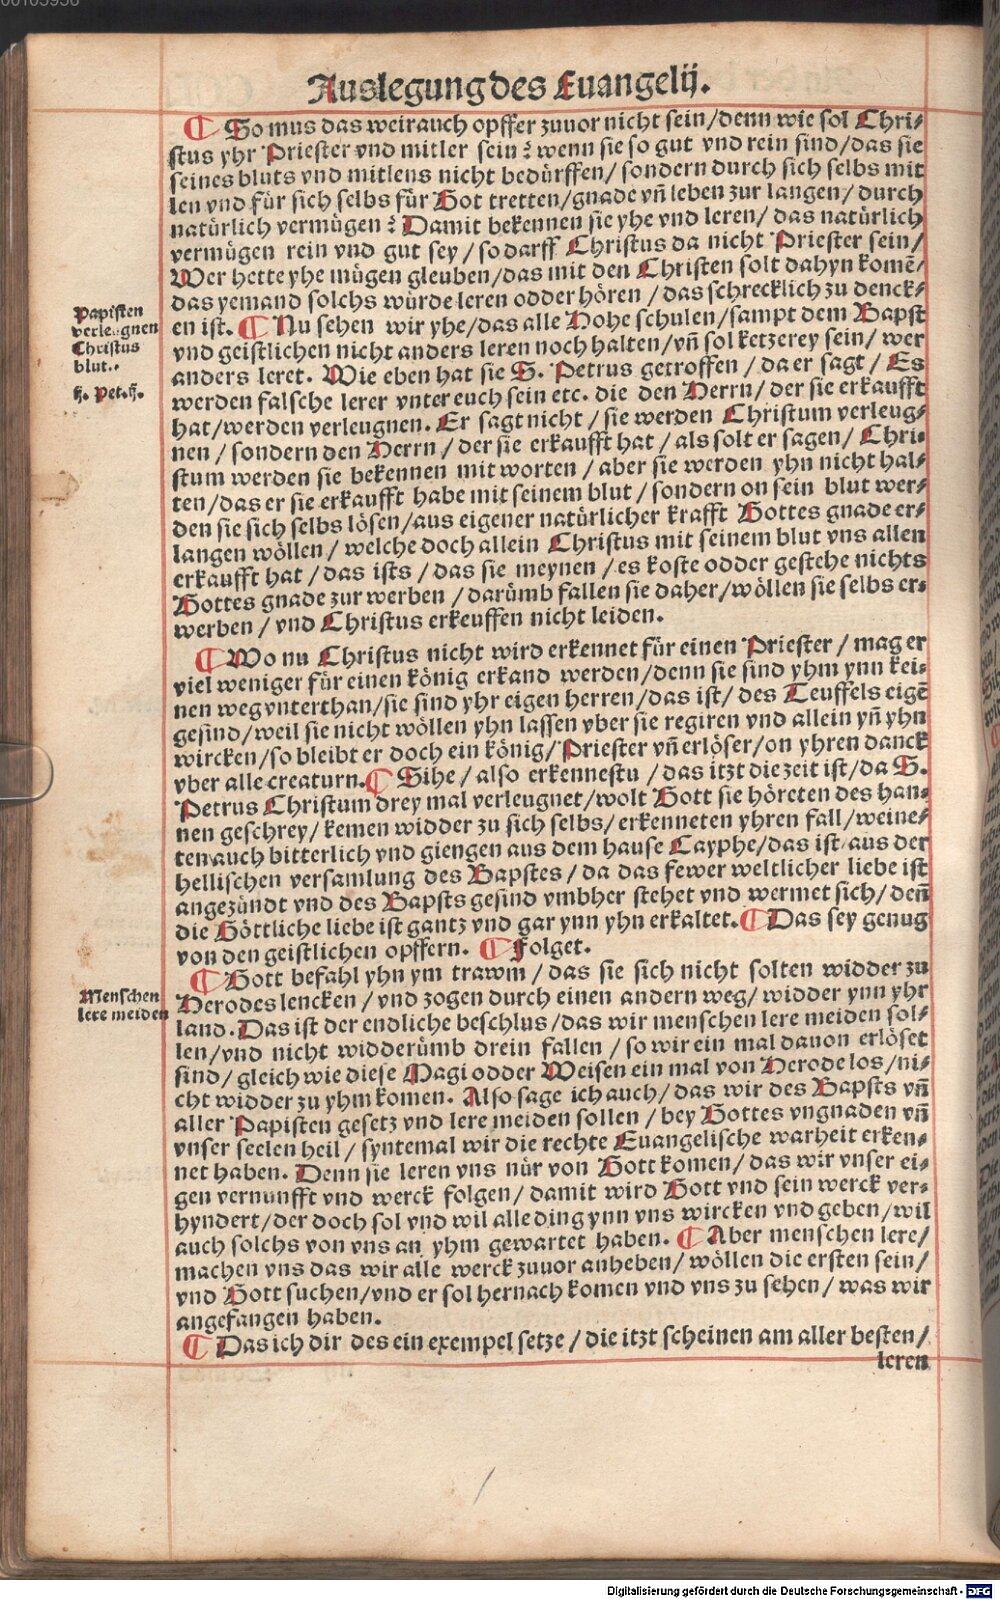 Auslegung des Euangelij.
¶ So mus das weirauch opffer zuuor nicht sein/denn wie sol Chri-
stus yhr Priester vnd mitler sein? wenn sie so gut vnd rein sind/das sie
seines bluts vnd mitlens nicht bedürffen/sondern durch sich selbs mit
len vnd für sich selbs für Got tretten/gnade vñ leben zur langen/durch
natürlich vermügen? Damit bekennen sie yhe vnd leren/das natürlich
vermügen rein vnd gut sey/so darff Christus da nicht Priester sein/
Wer hette yhe mügen gleuben/das mit den Christen solt dahyn komē/
das yemand solchs würde leren odder hören/das schrecklich zu denck-
en ist. ¶ Nu sehen wir yhe/das alle Hohe schulen/sampt dem Bapst
vnd geistlichen nicht anders leren noch halten/vñ sol ketzerey sein/wer
anders leret. Wie eben hat sie S. Petrus getroffen/da er sagt/Es
werden falsche lerer vnter euch sein etc. die den Herrn/der sie erkaufft
hat/werden verleugnen. Er sagt nicht/sie werden Christum verleug-
nen/sondern den Herrn/der sie erkaufft hat/als solt er sagen/Chri-
stum werden sie bekennen mit worten/aber sie werden yhn nicht hal-
ten/das er sie erkaufft habe mit seinem blut/sondern on sein blut wer-
den sie sich selbs lösen/aus eigener natürlicher krafft Gottes gnade er-
langen wöllen/welche doch allein Christus mit seinem blut vns allen
erkaufft hat/das ists/das sie meynen/es koste odder gestehe nichts
Gottes gnade zur werben/darümb fallen sie daher/wöllen sie selbs er-
werben/vnd Christus erkeuffen nicht leiden.
Papisten
verleugnen
Christus
blut..
ij. Pet. ij.
¶ Wo nu Christus nicht wird erkennet für einen Priester/mag er
viel weniger für einen könig erkand werden/denn sie sind yhm ynn kei-
nen weg vnterthan/sie sind yhr eigen herren/das ist/des Teuffels eigē
gesind/weil sie nicht wöllen yhn lassen vber sie regiren vnd allein yñ yhn
wircken/so bleibt er doch ein könig/Priester vñ erlöser/on yhren danck
vber alle creaturn. ¶ Sihe/also erkennestu/das itzt die zeit ist/da S.
Petrus Christum drey mal verleugnet/wolt Gott sie höreten des han-
nen geschrey/kemen widder zu sich selbs/erkenneten yhren fall/weine-
ten auch bitterlich vnd giengen aus dem hause Cayphe/das ist/aus der
hellischen versamlung des Bapstes/da das fewer weltlicher liebe ist
angezündt vnd des Bapsts gesind vmbher stehet vnd wermet sich/deñ
die Göttliche liebe ist gantz vnd gar ynn yhn erkaltet. ¶ Das sey genug
von den geistlichen opffern. ¶ Folget.
¶ Gott befahl yhn ym trawm/das sie sich nicht solten widder zu
Herodes lencken/vnd zogen durch einen andern weg/widder ynn yhr
land. Das ist der endliche beschlus/das wir menschen lere meiden sol-
len/vnd nicht widderümb drein fallen/so wir ein mal dauon erlöset
sind/gleich wie diese Magi odder Weisen ein mal von Herode los/ni-
cht widder zu yhm komen. Also sage ich auch/das wir des Bapsts vñ
aller Papisten gesetz vnd lere meiden sollen/bey Gottes vngnaden vñ
vnser seelen heil/syntemal wir die rechte Euangelische warheit erken-
net haben. Denn sie leren vns nür von Gott komen/das wir vnser ei-
gen vernunfft vnd werck folgen/damit wird Gott vnd sein werck ver-
hyndert/der doch sol vnd wil alle ding ynn vns wircken vnd geben/wil
auch solchs von vns an yhm gewartet haben. ¶ Aber menschen lere/
machen vns das wir alle werck zuuor anheben/wöllen die ersten sein/
vnd Gott suchen/vnd er sol hernach komen vnd vns zu sehen/was wir
angefangen haben.
Menschen
lere meiden
¶ Das ich dir des ein exempel setze/die itzt scheinen am aller besten/
leren
Digitalisierung gefördert durch die Deutsche Forschungsgemeinschaft - DFG